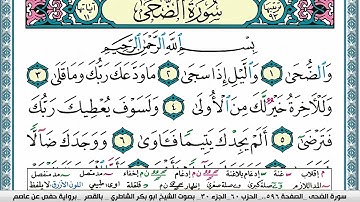 سُورَةُ الضُّحَىٰ
بِسْمِ اللَّهِ الرَّحْمَٰنِ الرَّحِيمِ
وَالضُّحَىٰ ١ وَاللَّيْلِ إِذَا سَجَىٰ ٢ مَا وَدَّعَكَ رَبُّكَ وَمَا قَلَىٰ ٣
وَلَلْآخِرَةُ خَيْرٌ لَّكَ مِنَ الْأُولَىٰ ٤ وَلَسَوْفَ يُعْطِيكَ رَبُّكَ
فَتَرْضَىٰ ٥ أَلَمْ يَجِدْكَ يَتِيمًا فَآوَىٰ ٦ وَوَجَدَكَ ضَالًّا
سورة الضحى، الصفحة ٥٩٦، الحزب ٦٠ الجزء ٣٠، بصوت الشيخ أبو بكر الشاطري، بالقصر، برواية حفص عن عاصم